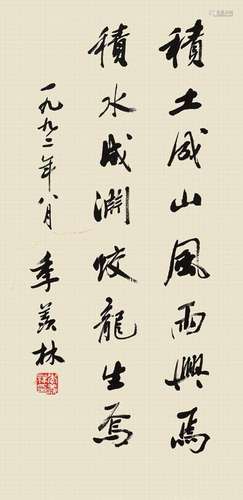 積土成山風雨興焉
積水成淵蛟龍生焉
一九九二年八月
季羨林